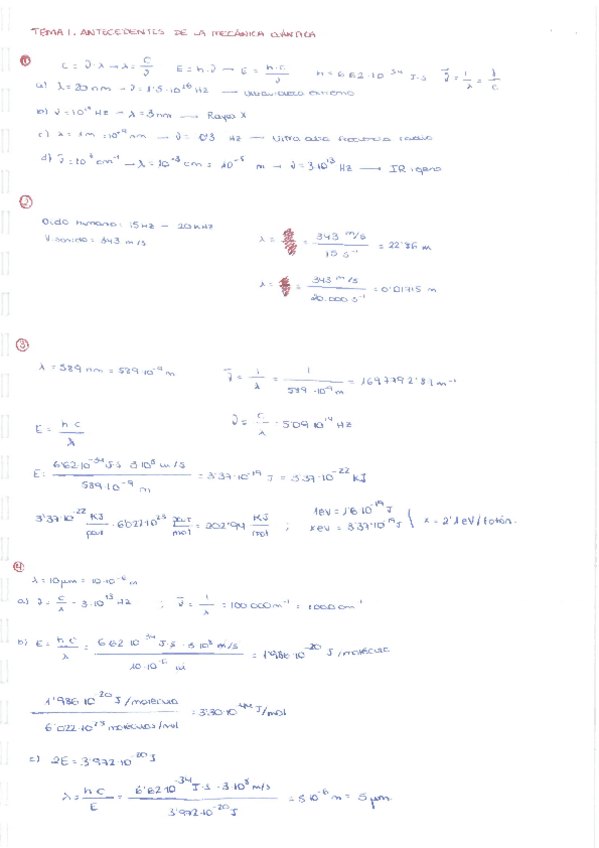 TEMA 1. ANTECEDENTES DE LA MECÁNICA CUÁNTICA
① C = ν·λ → λ = C/ν   E = h·ν → E = h·c/ν   h = 6'62·10^-34 J·s   ν̄ = 1/λ = ν/c
a) λ = 20 nm → ν = 1'5·10^16 Hz → Ultravioleta extremo
b) ν = 10^17 Hz → λ = 3 nm → Rayos X
c) λ = 1m = 10^-9 nm → ν = 0'3 Hz → Ultra alta frecuencia radio
d) ν̄ = 10^3 cm^-1 → λ = 10^-3 cm = 10^-5 m → ν = 3·10^13 Hz → IR lejano
②
Oído humano: 15 Hz - 20 kHz
V. sonido = 343 m/s
λ = = 343 m/s / 15 s^-1 = 22'86 m
λ = = 343 m/s / 20.000 s^-1 = 0'01715 m
③
λ = 589 nm = 589·10^-9 m   ν̄ = 1/λ = 1 / 589·10^-9 m = 1697792'81 m^-1
E = h c / λ   ν = c/λ = 5'09·10^14 Hz
E: 6'62·10^-34 J·s 3·10^8 m/s / 589·10^-9 m = 3'37·10^-19 J = 3'37·10^-22 kJ
3'37·10^-22 KJ/part · 6'022·10^23 part/mol = 202'94 KJ/mol ; 1eV = 1'6·10^-19 J
xeV = 3'37·10^-19 J } x = 2'1 eV/fotón.
④
λ = 10 μm = 10·10^-6 m
a) ν = c/λ = 3·10^13 Hz ; ν̄ = 1/λ = 100.000 m^-1 = 1000 cm^-1
b) E = h c / λ = 6'62·10^-34 J·s · 3·10^8 m/s / 10·10^-6 m = 1'986·10^-20 J/molécula
1'986·10^-20 J/molécula / 6'022·10^23 moléculas/mol = 3'30·10^-44 J/mol
c) 2E = 3'972·10^-20 J
λ = h c / E = 6'62·10^-34 J·s · 3·10^8 m/s / 3'972·10^-20 J = 5·10^-6 m = 5 μm.